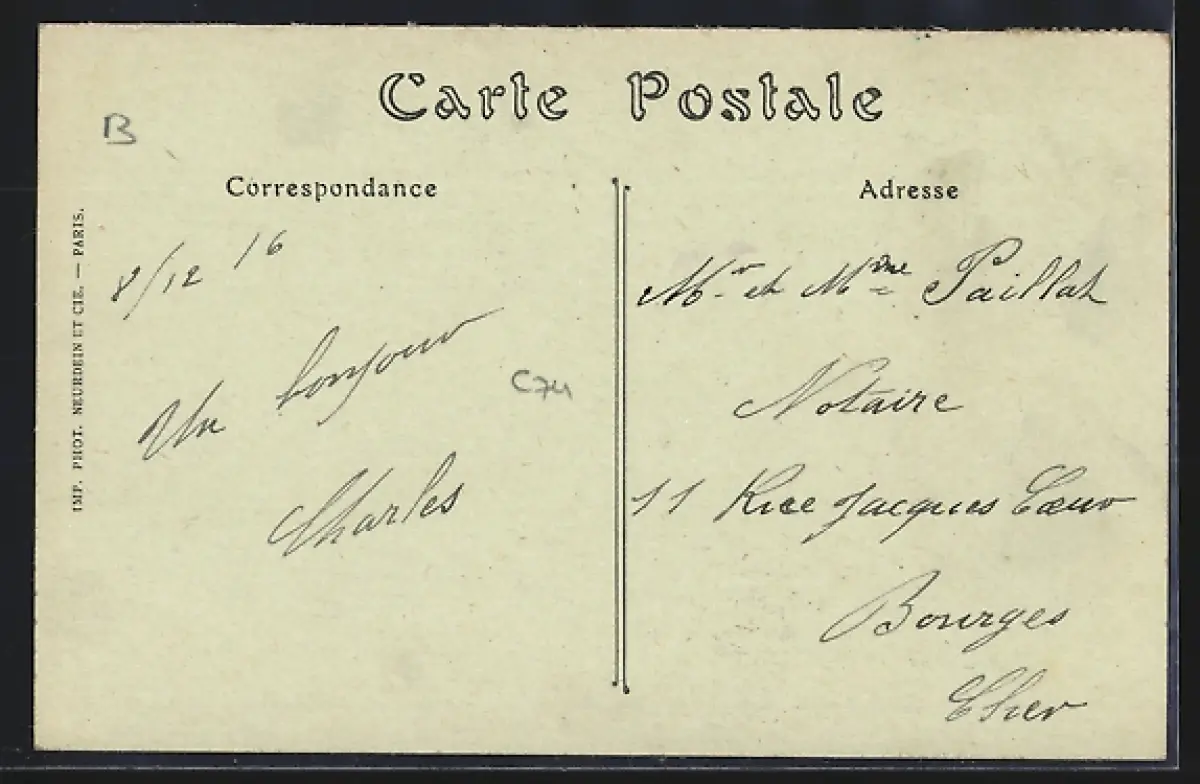 Carte Postale
B
Correspondance
8/12 16
Un bonjour
Charles
C74
IMP. PHOT. NEURDEIN ET CIE. — PARIS.
Adresse
Mr et Mme Paillat
Notaire
11 Rue Jacques Cœur
Bourges
Cher